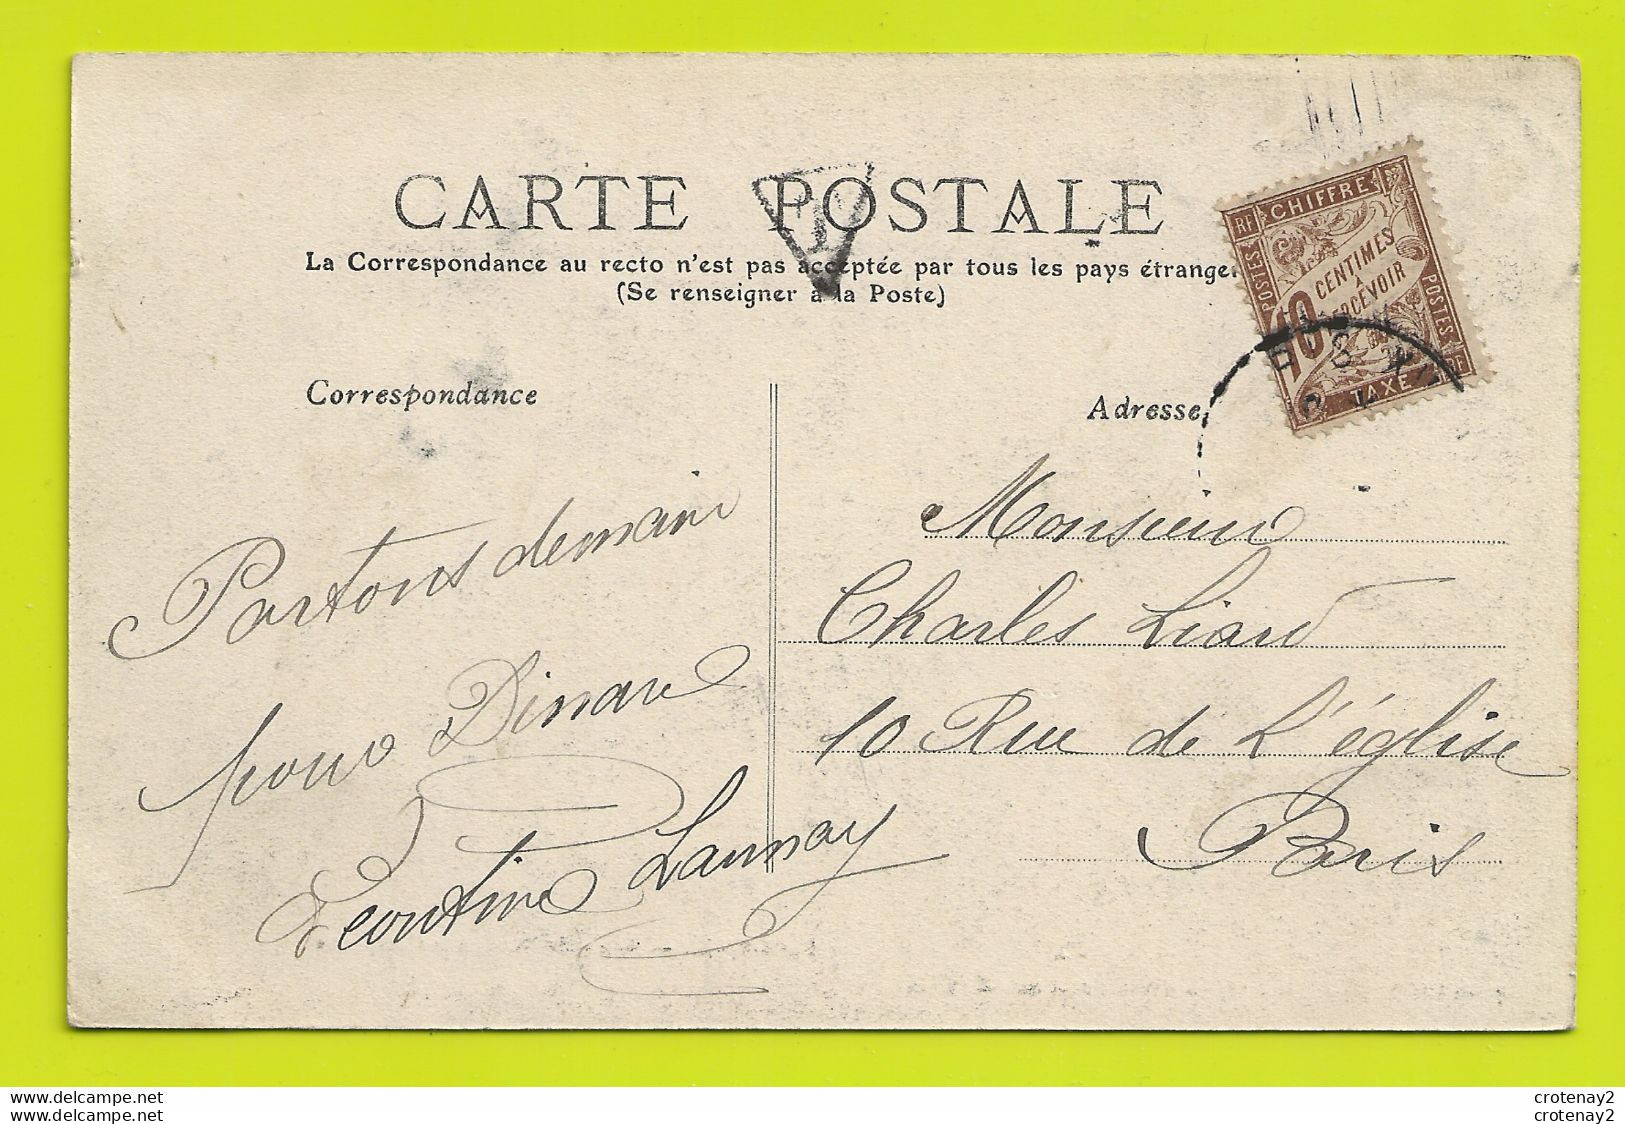 CARTE POSTALE
La Correspondance au recto n'est pas acceptée par tous les pays étranger
(Se renseigner à la Poste)
RF CHIFFRE
POSTES
10 CENTIMES
À
PERCEVOIR
POSTES
TAXE RF
T
Correspondance
Adresse
Partons demain
pour Dinard
Léontine Launay
Monsieur
Charles Liard
10 Rue de L'église
Paris
crotenay2
crotenay2
www.delcampe.net
www.delcampe.net